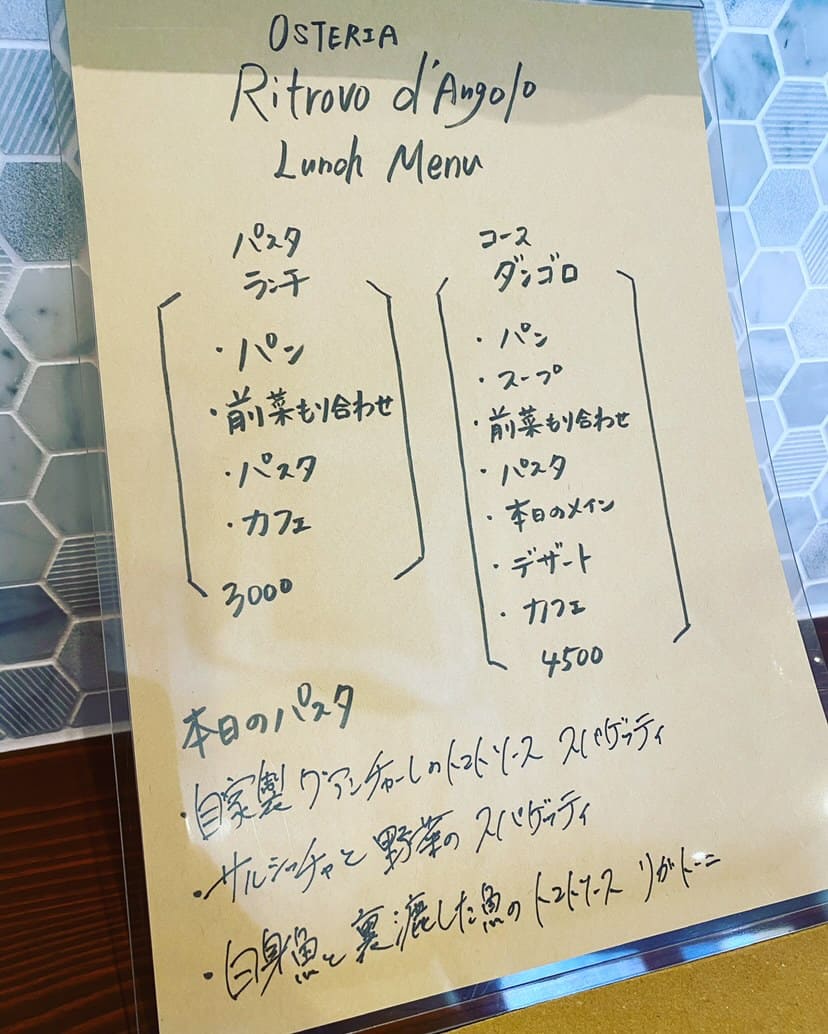 OSTERIA
Ritrovo d'Angolo
Lunch Menu
パスタ
ランチ
・パン
・前菜もり合わせ
・パスタ
・カフェ
3000
コース
ダンゴロ
・パン
・スープ
・前菜もり合わせ
・パスタ
・本日のメイン
・デザート
・カフェ
4500
本日のパスタ
・自家製グアンチャーレのトマトソース スパゲッティ
・サルシッチャと野菜のスパゲッティ
・白身魚と裏漉した魚のトマトソース リガトーニ